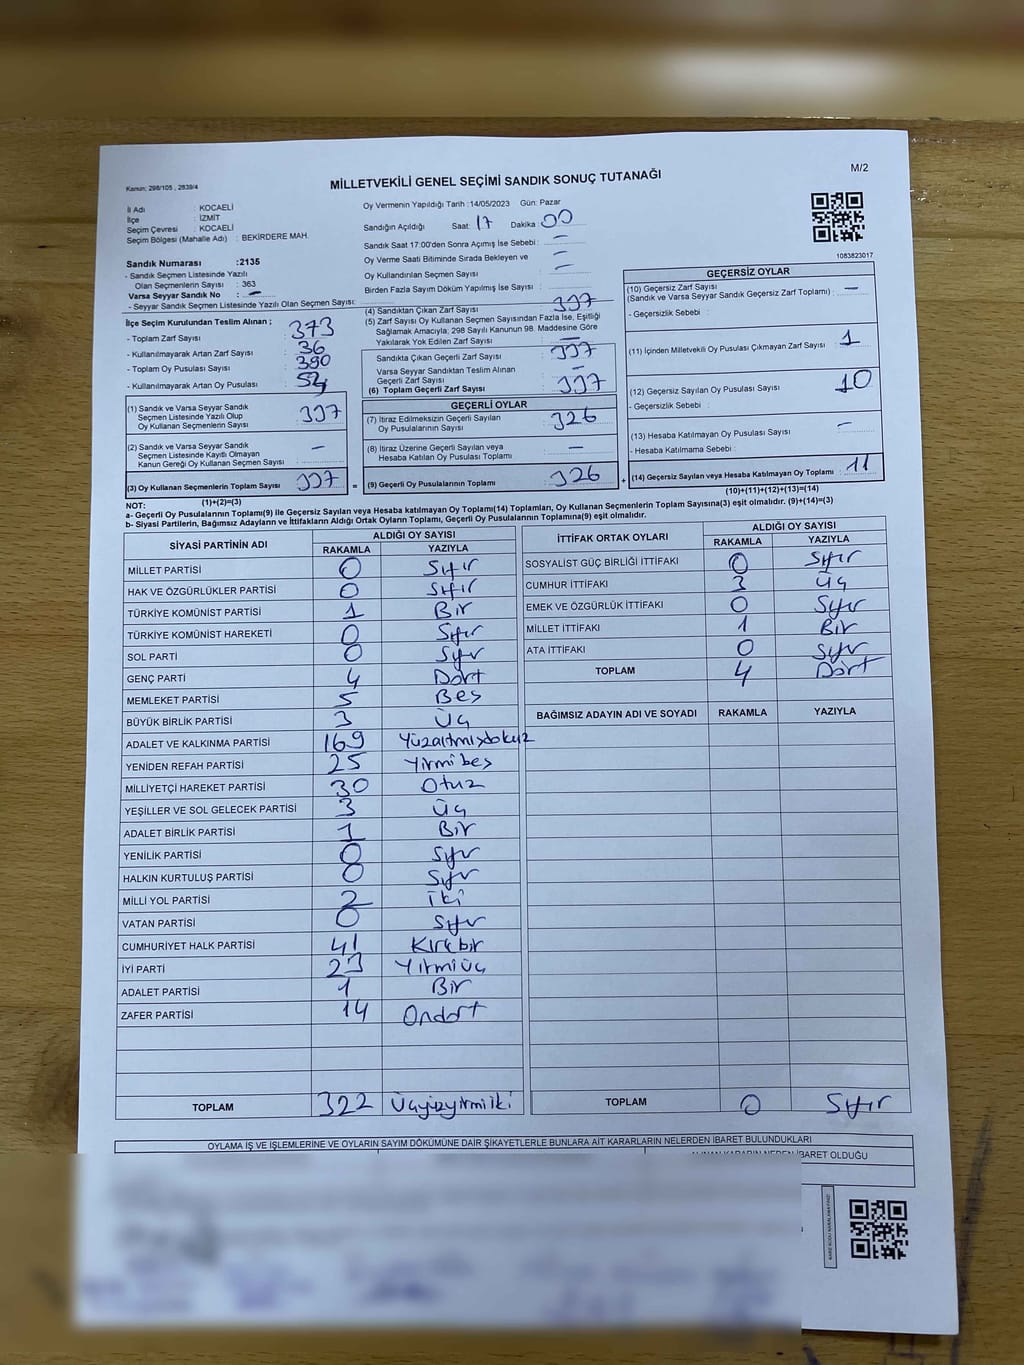 M/2
Kanun; 298/105 , 2839/4
MİLLETVEKİLİ GENEL SEÇİMİ SANDIK SONUÇ TUTANAĞI
İl Adı : KOCAELİ
İlçe : İZMİT
Seçim Çevresi : KOCAELİ
Seçim Bölgesi (Mahalle Adı) : BEKİRDERE MAH.
Sandık Numarası :2135
- Sandık Seçmen Listesinde Yazılı
Olan Seçmenlerin Sayısı : 363
Varsa Seyyar Sandık No : -
- Seyyar Sandık Seçmen Listesinde Yazılı Olan Seçmen Sayısı:
Oy Vermenin Yapıldığı Tarih :14/05/2023 Gün: Pazar
Sandığın Açıldığı Saat: 17 Dakika: 00
Sandık Saat 17:00'den Sonra Açımış İse Sebebi : -
Oy Verme Saati Bitiminde Sırada Bekleyen ve -
Oy Kullandırılan Seçmen Sayısı : -
Birden Fazla Sayım Döküm Yapılmış İse Sayısı :
1083823017
İlçe Seçim Kurulundan Teslim Alınan ;
- Toplam Zarf Sayısı : 373
- Kullanılmayarak Artan Zarf Sayısı : 36
- Toplam Oy Pusulası Sayısı : 390
- Kullanılmayarak Artan Oy Pusulası :
(1) Sandık ve Varsa Seyyar Sandık
Seçmen Listesinde Yazılı Olup : 337
Oy Kullanan Seçmenlerin Sayısı
(2) Sandık ve Varsa Seyyar Sandık
Seçmen Listesinde Kayıtlı Olmayan : -
Kanun Gereği Oy Kullanan Seçmen Sayısı
(3) Oy Kullanan Seçmenlerin Toplam Sayısı : 337
(1)+(2)=(3)
(4) Sandıktan Çıkan Zarf Sayısı : 337
(5) Zarf Sayısı Oy Kullanan Seçmen Sayısından Fazla İse, Eşitliği
Sağlamak Amacıyla, 298 Sayılı Kanunun 98. Maddesine Göre
Yakılarak Yok Edilen Zarf Sayısı : -
Sandıkta Çıkan Geçerli Zarf Sayısı : 337
Varsa Seyyar Sandıktan Teslim Alınan
Geçerli Zarf Sayısı : -
(6) Toplam Geçerli Zarf Sayısı : 337
GEÇERLİ OYLAR
(7) İtiraz Edilmeksizin Geçerli Sayılan
Oy Pusulalarının Sayısı : 326
(8) İtiraz Üzerine Geçerli Sayılan veya
Hesaba Katılan Oy Pusulası Toplamı : -
= (9) Geçerli Oy Pusulalarının Toplamı : 326
GEÇERSİZ OYLAR
(10) Geçersiz Zarf Sayısı
(Sandık ve Varsa Seyyar Sandık Geçersiz Zarf Toplamı) : -
- Geçersizlik Sebebi :
(11) İçinden Milletvekili Oy Pusulası Çıkmayan Zarf Sayısı : 1
(12) Geçersiz Sayılan Oy Pusulası Sayısı : 10
- Geçersizlik Sebebi :
(13) Hesaba Katılmayan Oy Pusulası Sayısı : -
- Hesaba Katılmama Sebebi :
+ (14) Geçersiz Sayılan veya Hesaba Katılmayan Oy Toplamı : 11
(10)+(11)+(12)+(13)=(14)
NOT:
a- Geçerli Oy Pusulalarının Toplamı(9) ile Geçersiz Sayılan veya Hesaba katılmayan Oy Toplamı(14) Toplamları, Oy Kullanan Seçmenlerin Toplam Sayısına(3) eşit olmalıdır. (9)+(14)=(3)
b- Siyasi Partilerin, Bağımsız Adayların ve İttifakların Aldığı Ortak Oyların Toplamı, Geçerli Oy Pusulalarının Toplamına(9) eşit olmalıdır.
SİYASİ PARTİNİN ADI ALDIĞI OY SAYISI
RAKAMLA YAZIYLA
MİLLET PARTİSİ 0 Sıfır
HAK VE ÖZGÜRLÜKLER PARTİSİ 0 Sıfır
TÜRKİYE KOMÜNİST PARTİSİ 1 Bir
TÜRKİYE KOMÜNİST HAREKETİ 0 Sıfır
SOL PARTİ 0 Sıfır
GENÇ PARTİ 4 Dört
MEMLEKET PARTİSİ 5 Beş
BÜYÜK BİRLİK PARTİSİ 3 Üç
ADALET VE KALKINMA PARTİSİ 169 Yüzaltmışdokuz
YENİDEN REFAH PARTİSİ 25 Yirmibeş
MİLLİYETÇİ HAREKET PARTİSİ 30 Otuz
YEŞİLLER VE SOL GELECEK PARTİSİ 3 Üç
ADALET BİRLİK PARTİSİ 1 Bir
YENİLİK PARTİSİ 0 Sıfır
HALKIN KURTULUŞ PARTİSİ 0 Sıfır
MİLLİ YOL PARTİSİ 2 İki
VATAN PARTİSİ 0 Sıfır
CUMHURİYET HALK PARTİSİ 41 Kırkbir
İYİ PARTİ 23 Yirmiüç
ADALET PARTİSİ 1 Bir
ZAFER PARTİSİ 14 Ondört
TOPLAM 322 Üçyüzyirmiiki
İTTİFAK ORTAK OYLARI ALDIĞI OY SAYISI
RAKAMLA YAZIYLA
SOSYALİST GÜÇ BİRLİĞİ İTTİFAKI 0 Sıfır
CUMHUR İTTİFAKI 3 Üç
EMEK VE ÖZGÜRLÜK İTTİFAKI 0 Sıfır
MİLLET İTTİFAKI 1 Bir
ATA İTTİFAKI 0 Sıfır
TOPLAM 4 Dört
BAĞIMSIZ ADAYIN ADI VE SOYADI RAKAMLA YAZIYLA
TOPLAM 0 Sıfır
OYLAMA İŞ VE İŞLEMLERİNE VE OYLARIN SAYIM DÖKÜMÜNE DAİR ŞİKAYETLERLE BUNLARA AİT KARARLARIN NELERDEN İBARET BULUNDUKLARI
ALINAN KARARIN NEDEN İBARET OLDUĞU